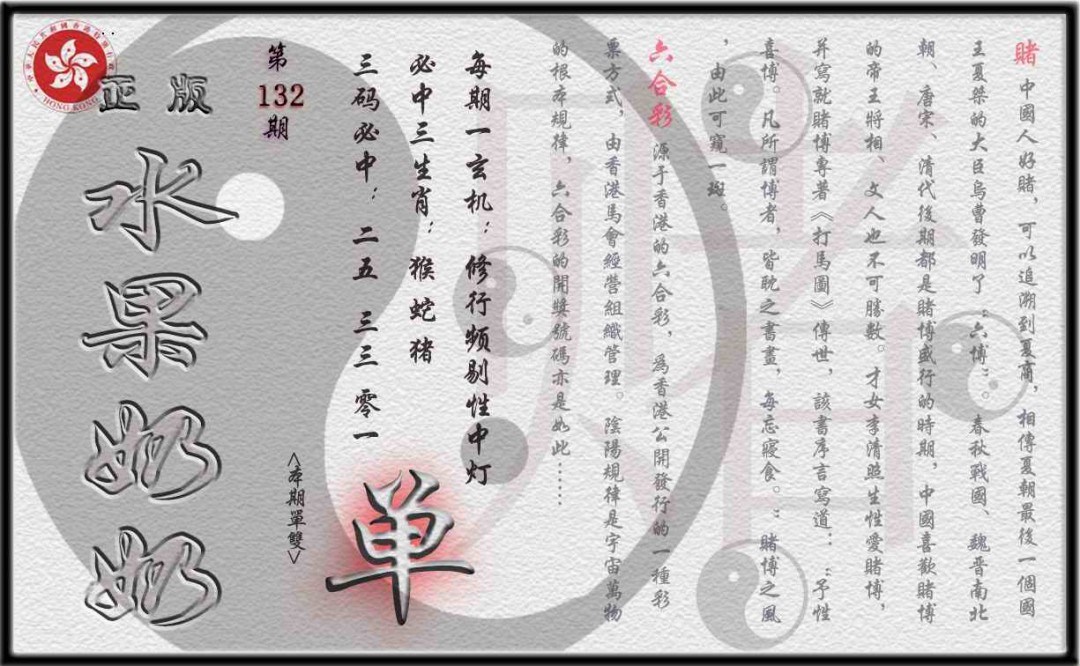 賭 中國人好賭，可以追溯到夏商，相傳夏朝最後一個國
王夏桀的大臣烏曹發明了“六博”。春秋戰國、魏晉南北
朝、唐宋、清代後期都是賭博盛行的時期，中國喜歡賭博
的帝王將相、文人也不可勝數。才女李清照生性愛賭博，
并寫就賭博專著《打馬圖》傳世，該書序言寫道：“予性
喜博。凡所謂博者，皆耽之書畫，每忘寢食。”賭博之風
，由此可窺一斑。
六合彩 源于香港的六合彩，為香港公開發行的一種彩
票方式，由香港馬會經營組織管理。陰陽規律是宇宙萬物
的根本規律，六合彩的開獎號碼亦是如此……
每期一玄机：修行频剔性中灯
必中三生肖：猴蛇猪
三码必中：二五 三三 零一
单
<本期單雙>
第132期
正版
水果奶奶
HONG KONG